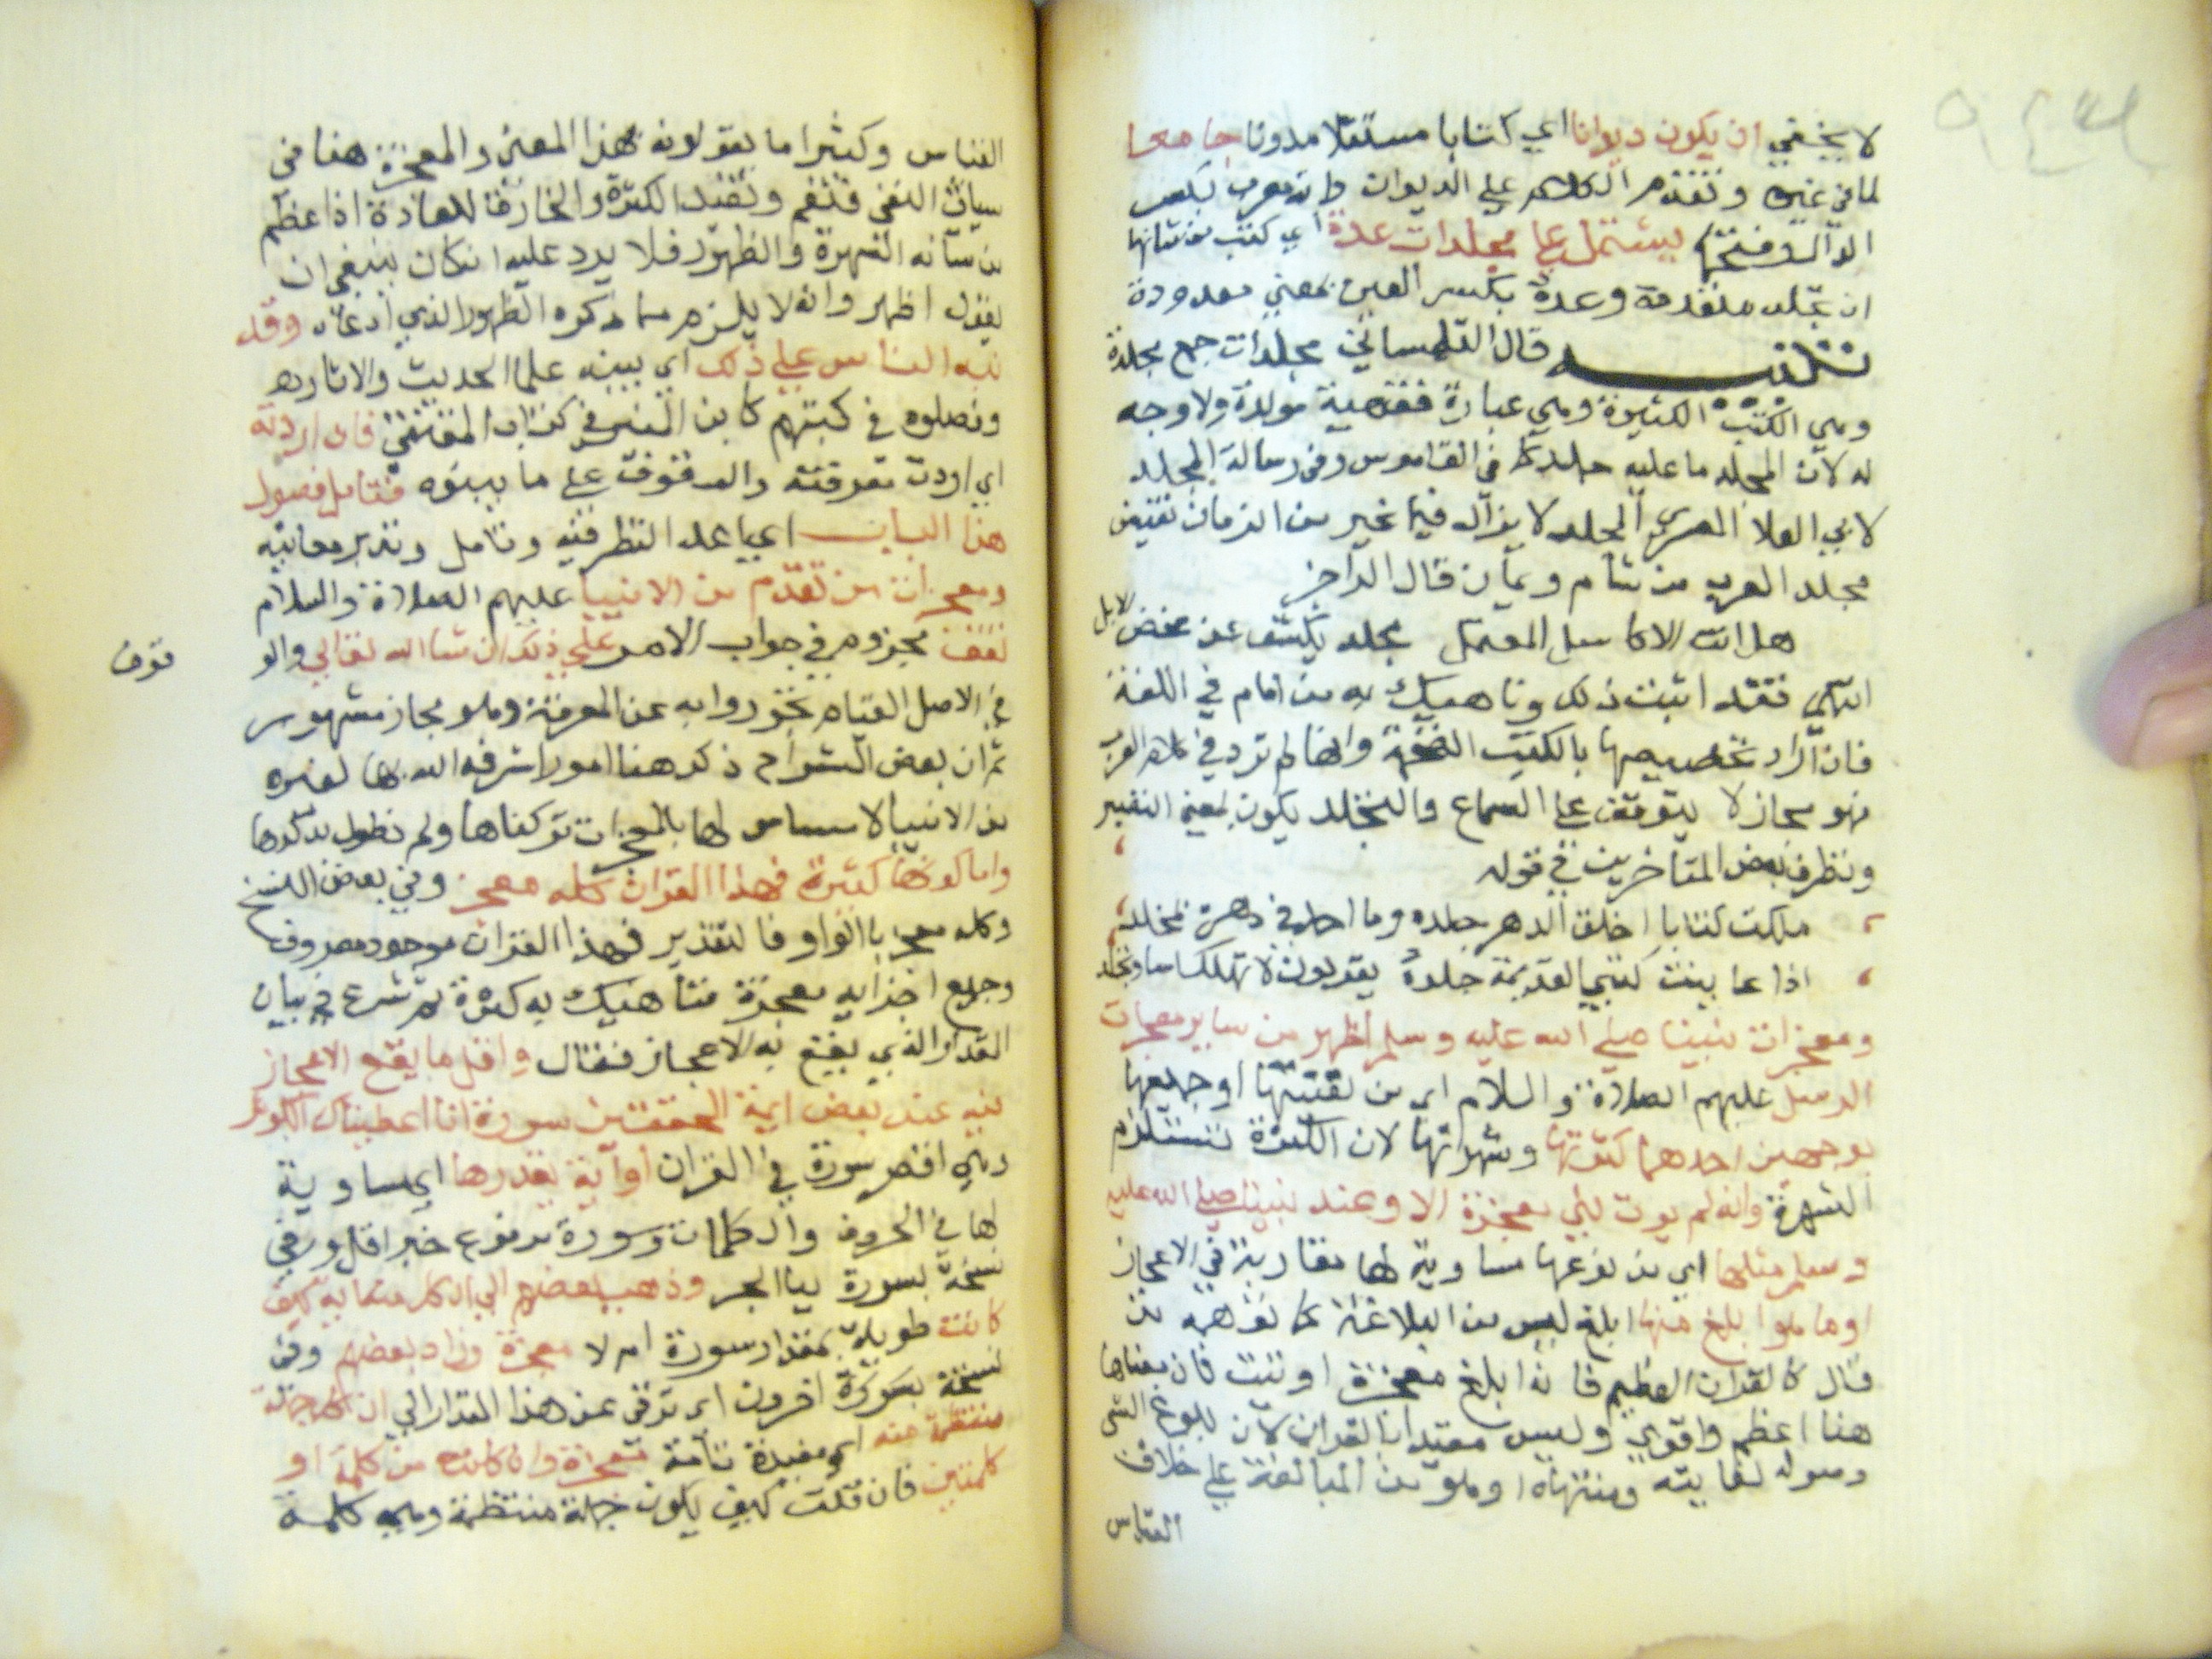 لا يخفي ان يكون ديوانا اي كتابا مستقلا مدونا جامعا
لما في غيره وتقدم الكلام علي الديوان وانه معرب بكسر
الدال وفتحها يشتمل علي مجلدات عدة اي كتب من شانها
ان تجلد متقدمة وعدة بكسر العين بمعني معدودة
تنبيه قال التلمساني مجلدات جمع مجلدة
وهي الكتب الكثيرة وهي عبارة فقهية مولدة ولا وجه
له لان المجلد ما عليه جلد كما في القاموس وفي رسالة المجلد
لابي العلا المعري المجلد لا يزال فيما غبر من الزمان
مجلد العرب من شام ويمان قال الراجز
هل انت الا كا سل المعمل مجلد يكشف عن بعض الابل
انتهي فقد اثبت ذلك وناهيك به من امام في اللغة
فان اراد تخصيصها بالكتب الضخمة وانها لم ترد في كلام العرب
فهو مجاز لا يتوقف علي السماع والتجلد يكون بمعني
وتظرف بعض المتاخرين في قوله
ملكت كتابا اخلق الدهر جلده وما احد في دهره بمخلد
اذا عاينت كتبي القديمة جلده يقولون لا تهلك اسا وتجلد
ومعجزات نبينا صلي الله عليه وسلم اظهر من ساير معجزات
الرسل عليهم الصلاة والسلام اي من بقيتها او جميعها
بوجهين احدهما كثرتها وشهرتها لان الكثرة تستلزم
الشهرة وانه لم يوت نبي معجزة الا وعند نبينا صلي الله عليه
وسلم مثلها اي من نوعها مساوية لها مقاربة في الاعجاز
او ما هو ابلغ منها ابلغ ليس من البلاغة كما توهمه من
قال كالقران العظيم فانه ابلغ معجزة اوتيت فان معناها
هنا اعظم واقوي وليس مقيدا بالقران لان بلوغ الشي
وصوله لغايته ومنتهاه او هو من المبالغة علي خلاف
القياس
القياس وكثيرا ما يقولونه بهذا المعني والمعجزة هنا في
سياق النفي فتعم وتفيد الكثرة والخارق للعادة اذا عظم
من شانه الشهرة والظهور فلا يرد عليه انه كان ينبغي ان
يقول اظهر وانه لا يلزم مما ذكره الظهور الذي ادعاه وقد
نبه الناس علي ذلك اي بينه علما الحديث والاثار
وفصلوه في كتبهم كابن المنير في كتاب المقتفي فان اردته
اي اردت معرفته والوقوف علي ما بينوه فتامل فصول
هذا الباب اي اعد النظر فيه وتامل وتدبر معانيه
ومعجزات من تقدم من الانبيا عليهم الصلاة والسلام
تقف مجزوم في جواب الامر علي ذلك ان شا الله تعالي والو
قوف
في الاصل القيام تجوزوا به عن المعرفة وهو مجاز مشهور
ثم ان بعض الشراح ذكر هنا امورا شرفه الله بها لغيره
من الانبيا لا مساس لها بالمعجزات تركناها ولم نطول بذكرها
واما كونها كثيرة فهذا القران كله معجز وفي بعض النسخ
وكله معجز بالواو فالتقدير فهذا القران موجود معروف
وجميع اجزايه معجزة فناهيك به كثرة ثم شرع في بيان
القدر الذي يقع به الاعجاز فقال واقل ما يقع الاعجاز
فيه عند بعض ايمة المحققين سورة انا اعطيناك الكوثر
وهي اقصر سورة في القران او آية بقدرها اي مساوية
لها في الحروف والكلمات وسورة مرفوع خبر اقل وفي
نسخة بسورة ببا الجر وذهب بعضهم الي ان كل اية كيف
كانت طويلة بمقدار سورة ام لا معجزة وزاد بعضهم وفي
نسخة اخرون اي ترقي عن هذا المقدار الي ان كل جملة
منتظمة منه اي مفيدة تامة معجزة وان كانت من كلمة او
كلمتين فان قلت كيف يكون جملة منتظمة وهي كلمة